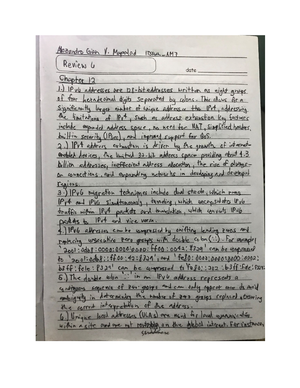 Alexandra Goth V. Mayoralgo BSInfo_3M7
Review 6
date
Chapter 12
1.) IPv6 addresses are 128-bit addresses written as eight groups
of four hexadecimal digits separated by colons. This allows for a
significantly larger number of unique address than IPv4, addressing
the limitations of IPv4, such as address exhaustion key features
include expanded address space, no need for NAT, simplified header,
built-in security (IPsec), and improved support for QoS.
2.) IPv4 address exhaustion is driven by the growth of internet-
enabled devices, the limited 32-bit address space providing about 4.3
billion addresses, inefficient address allocation, the rise of always-
on connections, and expanding networks in developing and developed
regions.
3.) IPv6 migration techniques include dual stack, which runs
IPv4 and IPv6 simultaneously, tunneling, which encapsulates IPv6
traffic within IPv4 packets and translation, which converts IPv6
packets to IPv4 and vice versa.
4.) IPv6 addresses can be compressed by omitting leading zeros and
replacing consecutive zero groups with double colon (::). For example,
can be compressed
to
can be compressed to
5.) The double colon "::" in an IPv6 address represents a
contiguous sequence of zero groups and can only appear once to avoid
ambiguity in determining the number of zero groups replaced, ensuring
the correct interpretation of the address.
6.) Unique local addresses (ULAs) are used for local communication
within a site and are not routable on the global internet. For instance,